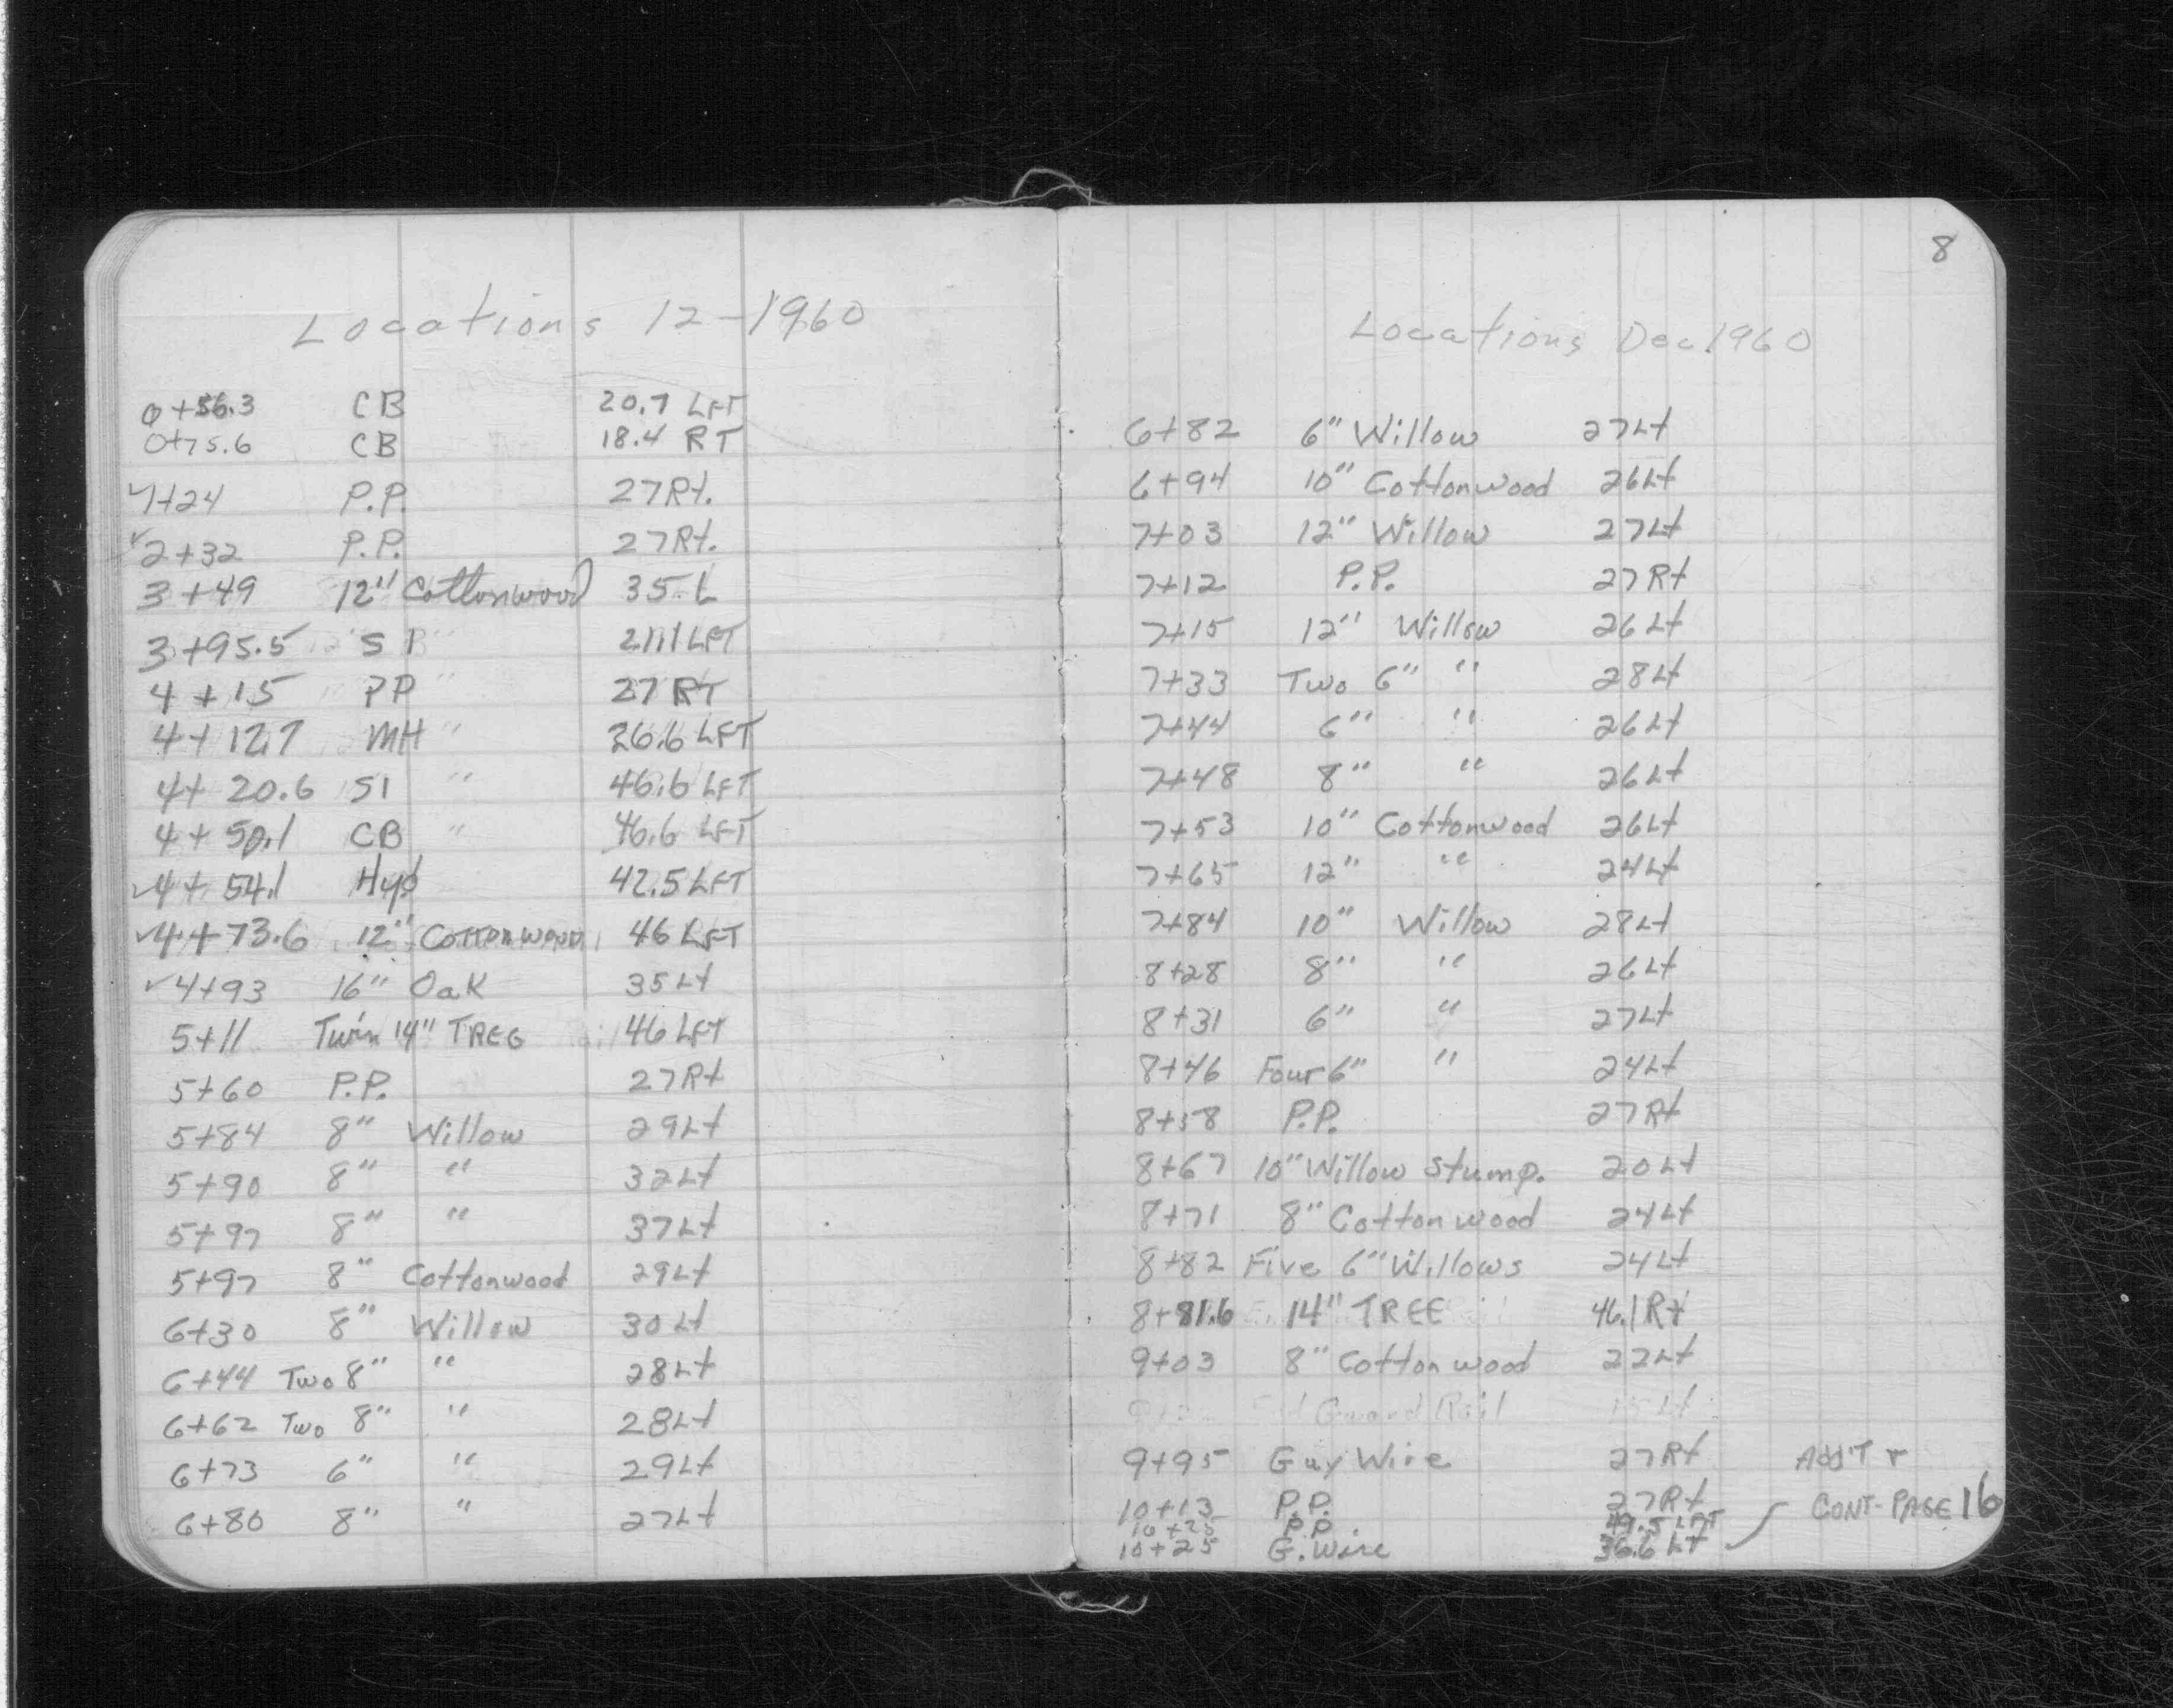 Locations 12-1960
0+56.3 CB 20.7 LFT
0+75.6 CB 18.4 RT
✓1+24 P.P. 27Rt.
✓2+32 P.P. 27Rt.
3+49 12" Cottonwood 35 L
3+95.5 S 21.1 LFT
4+15 PP 27 RT
4+12.7 MH 26.6 LFT
4+20.6 SI 46.6 LFT
4+50.1 CB 46.6 LFT
✓4+54.1 Hyd 42.5 LFT
✓4+73.6 12" COTTONWOOD 46 LFT
✓4+93 16" Oak 35Lt
5+11 Twin 14" TREE 46 LFT
5+60 P.P. 27Rt
5+84 8" Willow 29Lt
5+90 8" " 32Lt
5+97 8" " 37Lt
5+97 8" Cottonwood 29Lt
6+30 8" Willow 30Lt
6+44 Two 8" " 28Lt
6+62 Two 8" " 28Lt
6+73 6" " 29Lt
6+80 8" " 27Lt
8
Locations Dec 1960
6+82 6" Willow 27Lt
6+94 10" Cottonwood 26Lt
7+03 12" Willow 27Lt
7+12 P.P. 27Rt
7+15 12" Willow 26Lt
7+33 Two 6" " 28Lt
7+44 6" " 26Lt
7+48 8" " 26Lt
7+53 10" Cottonwood 26Lt
7+65 12" " 24Lt
7+84 10" Willow 28Lt
8+28 8" " 26Lt
8+31 6" " 27Lt
8+46 Four 6" " 24Lt
8+58 P.P. 27Rt
8+67 10" Willow Stump. 20Lt
8+71 8" Cottonwood 24Lt
8+82 Five 6" Willows 24Lt
8+81.6 14" TREE 46.1Rt
9+03 8" Cottonwood 22Lt
Guard Rail
9+95 Guy Wire 27Rt ADD'T
10+13 P.P. 27Rt CONT-PAGE 16
10+25 P.P. 49.5 LFT
10+25 G. Wire 36.6 LT